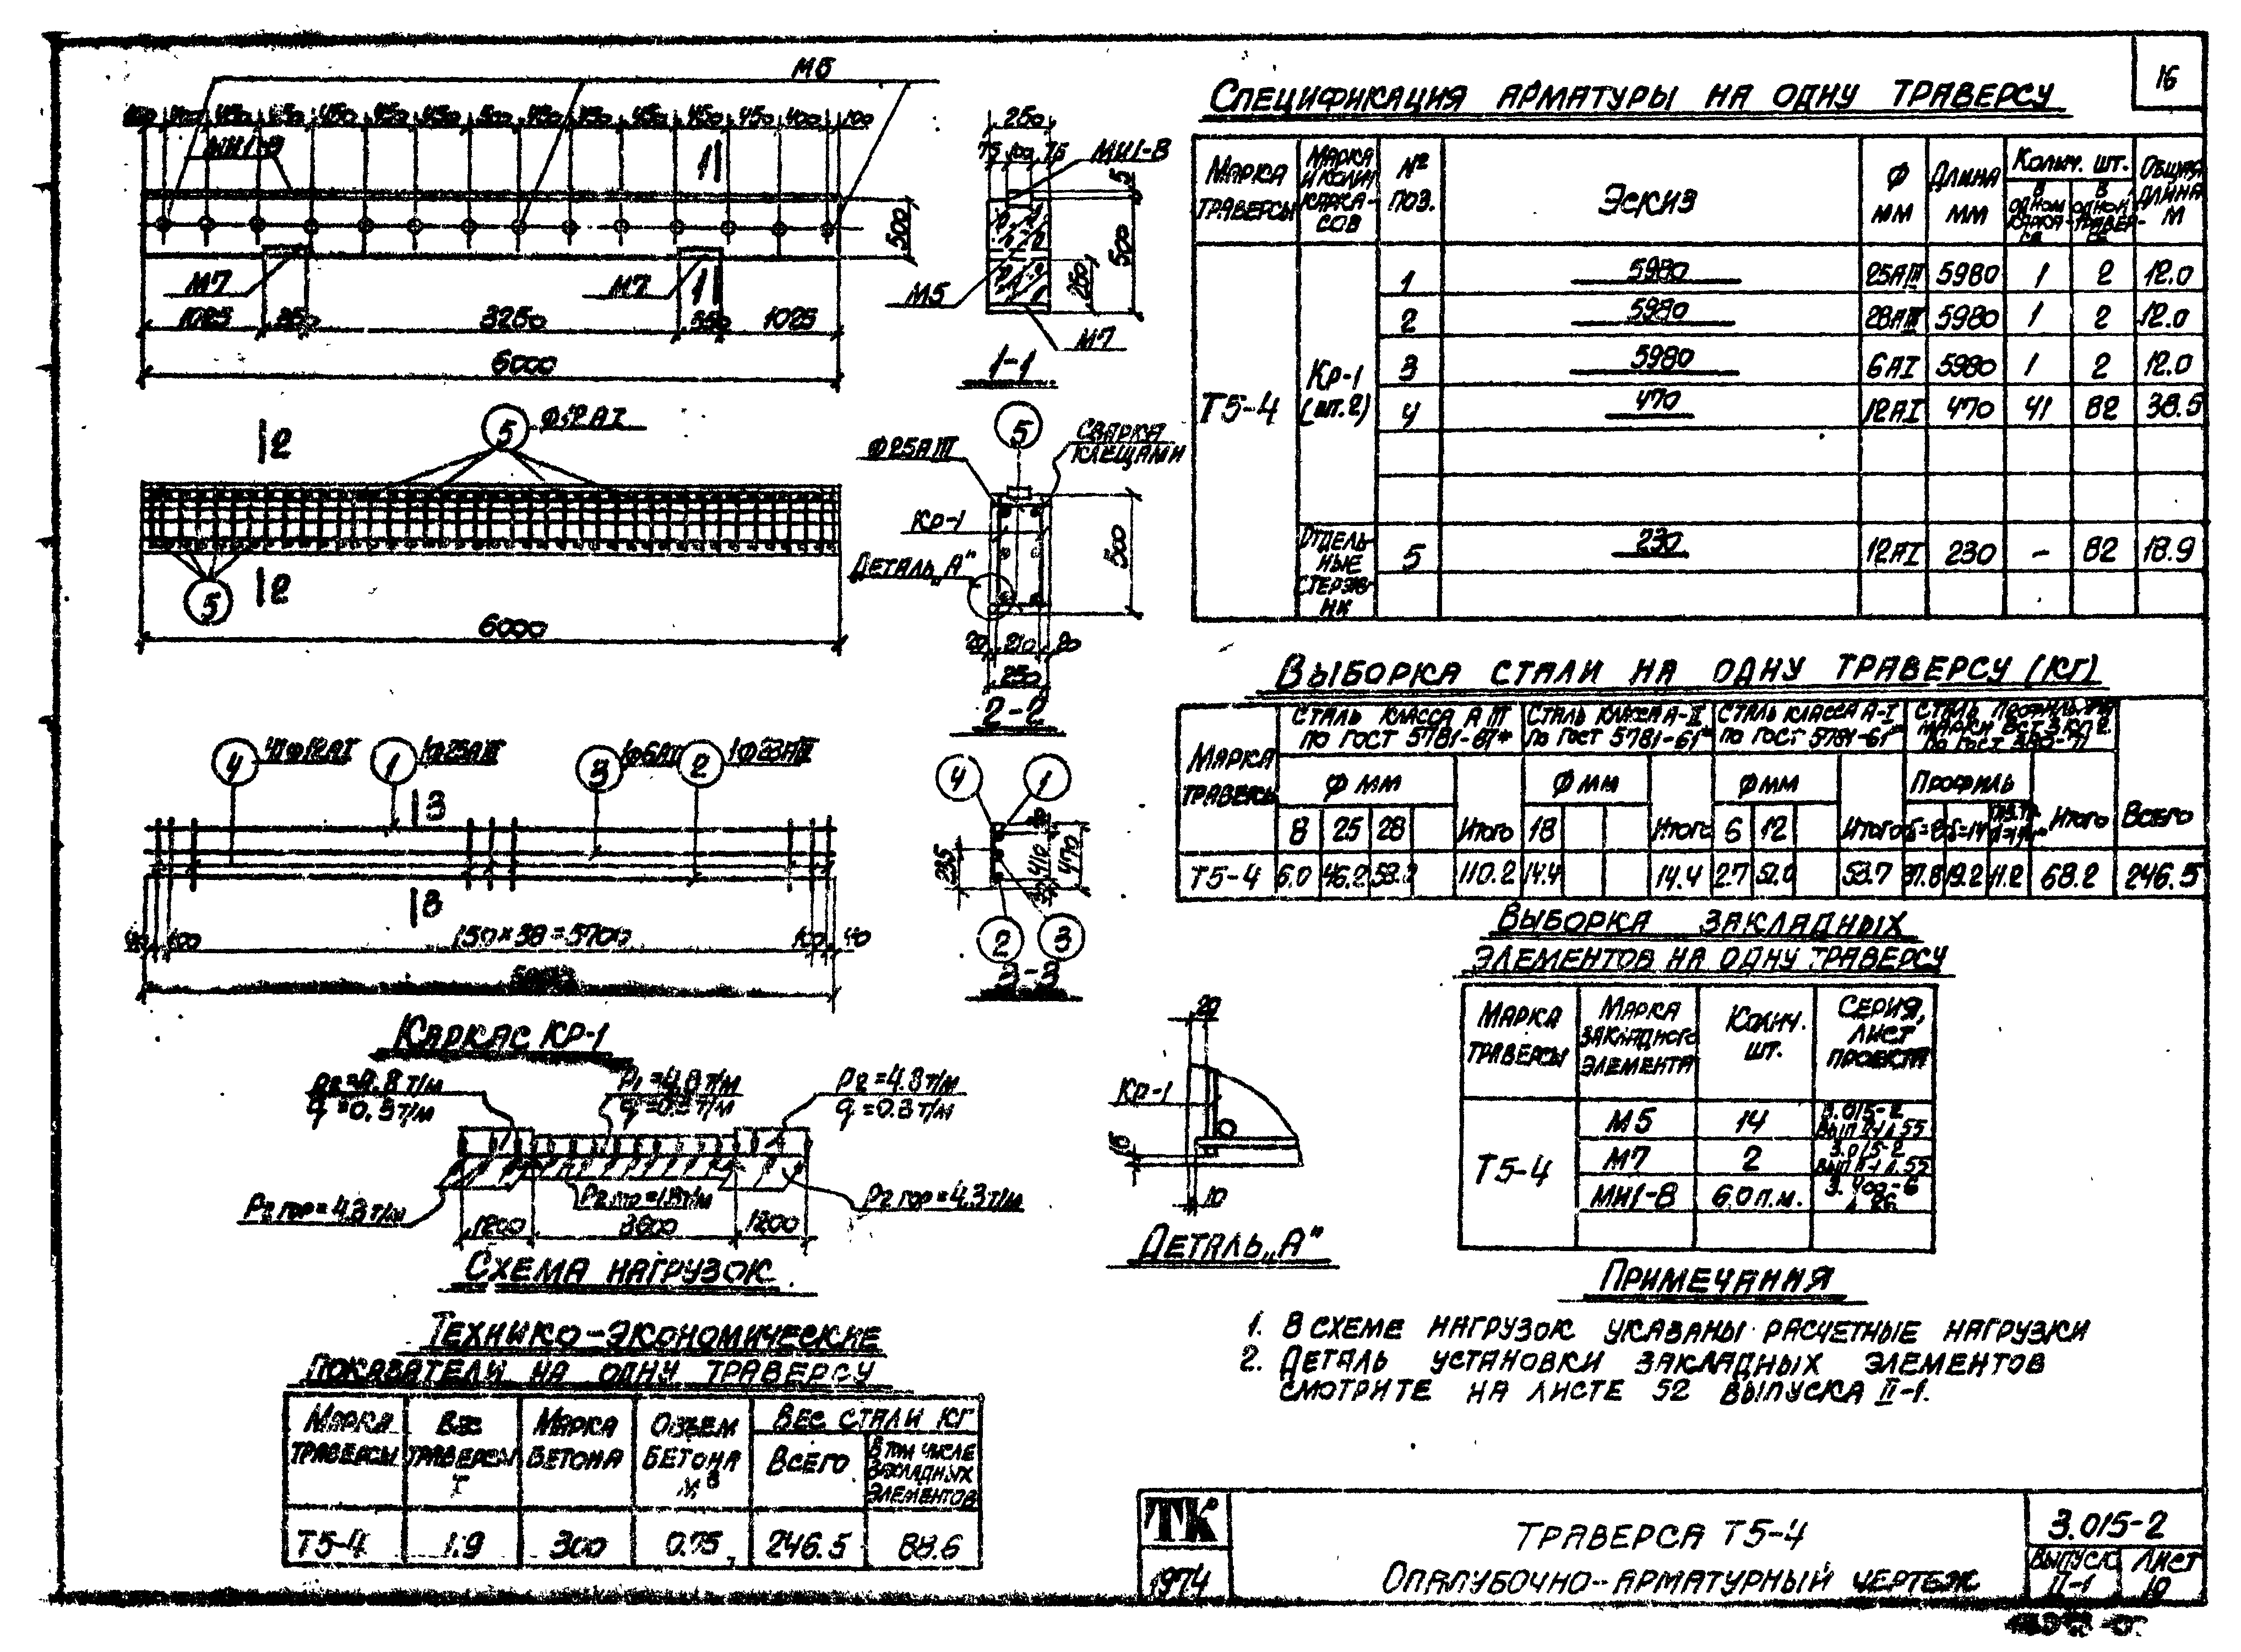 16
М5
400 450 450 450 450 450 450 450 400 100
МН1-8
1 1
500
М7
М7
1025 350 3250 350 1025
6000
250
75 100 75
МН1-8
5
500
250
М5
М7
1-1
2
5
Ф12АI
5
2
6000
5
Ф25АIII
СВАРКА
КЛЕЩАМИ
Кр-1
500
ДЕТАЛЬ „А"
20 210 20
250
2-2
4 41Ф12АI
1 1Ф25АIII
3 1Ф6АI
2 1Ф28АIII
3
3
40 100 150×38=5700 100 40
КАРКАС КР-1
4 1
410 470
2 3
3-3
P2=4.8Т/М
q=0.3Т/М
P1=4.8Т/М
q=0.3Т/М
P2=4.8Т/М
q=0.3Т/М
P2 гор=4.3Т/М
P2 гор=4.3Т/М
1200 3600 1200
СХЕМА НАГРУЗОК
20
Кр-1
10
ДЕТАЛЬ „А"
ТЕХНИКО-ЭКОНОМИЧЕСКИЕ
ПОКАЗАТЕЛИ НА ОДНУ ТРАВЕРСУ
МАРКА ТРАВЕРСЫ
ВЕС ТРАВЕРСЫ Т
МАРКА БЕТОНА
ОБЪЕМ БЕТОНА М3
ВЕС СТАЛИ КГ
ВСЕГО
В ТОМ ЧИСЛЕ ЗАКЛАДНЫХ ЭЛЕМЕНТОВ
Т5-4 1.9 300 0.75 246.5 88.6
СПЕЦИФИКАЦИЯ АРМАТУРЫ НА ОДНУ ТРАВЕРСУ
МАРКА ТРАВЕРСЫ
МАРКА И КОЛИЧ КАРКАСОВ
№ ПОЗ.
ЭСКИЗ
Ф ММ
ДЛИНА ММ
КОЛИЧ. ШТ.
В ОДНОМ КАРКАСЕ
В ОДНОЙ ТРАВЕРСЕ
ОБЩАЯ ДЛИНА М
Т5-4
Кр-1 (шт.2)
1 5980 25АIII 5980 1 2 12.0
2 5980 28АIII 5980 1 2 12.0
3 5980 6АI 5980 1 2 12.0
4 470 12АI 470 41 82 38.5
ОТДЕЛЬНЫЕ СТЕРЖНИ
5 230 12АI 230 - 82 18.9
ВЫБОРКА СТАЛИ НА ОДНУ ТРАВЕРСУ (КГ)
МАРКА ТРАВЕРСЫ
СТАЛЬ КЛАССА АIII ПО ГОСТ 5781-61*
СТАЛЬ КЛАССА А-II ПО ГОСТ 5781-61*
СТАЛЬ КЛАССА А-I ПО ГОСТ 5781-61*
Ф ММ
Ф ММ
Ф ММ
ПРОФИЛЬ
ИТОГО
ВСЕГО
8 25 28 ИТОГО 18 ИТОГО 6 12 ИТОГО
Т5-4 6.0 46.2 58.2 110.2 14.4 14.4 2.7 51.0 53.7 37.8 19.2 11.2 68.2 246.5
ВЫБОРКА ЗАКЛАДНЫХ
ЭЛЕМЕНТОВ НА ОДНУ ТРАВЕРСУ
МАРКА ТРАВЕРСЫ
МАРКА ЗАКЛАДНОГО ЭЛЕМЕНТА
КОЛИЧ. ШТ.
СЕРИЯ, ЛИСТ ПРОЕКТА
Т5-4
М5 14 3.015-2 ВЫП. II-1 Л.55
М7 2 3.015-2 ВЫП. II-1 Л.55
МН1-8 6.0 П.М. 3.400-6
ПРИМЕЧАНИЯ
1. В СХЕМЕ НАГРУЗОК УКАЗАНЫ РАСЧЕТНЫЕ НАГРУЗКИ
2. ДЕТАЛЬ УСТАНОВКИ ЗАКЛАДНЫХ ЭЛЕМЕНТОВ
СМОТРИТЕ НА ЛИСТЕ 52 ВЫПУСКА II-1.
ТК
1974
ТРАВЕРСА Т5-4
ОПАЛУБОЧНО-АРМАТУРНЫЙ ЧЕРТЕЖ
3.015-2
ВЫПУСК II-1
ЛИСТ 10